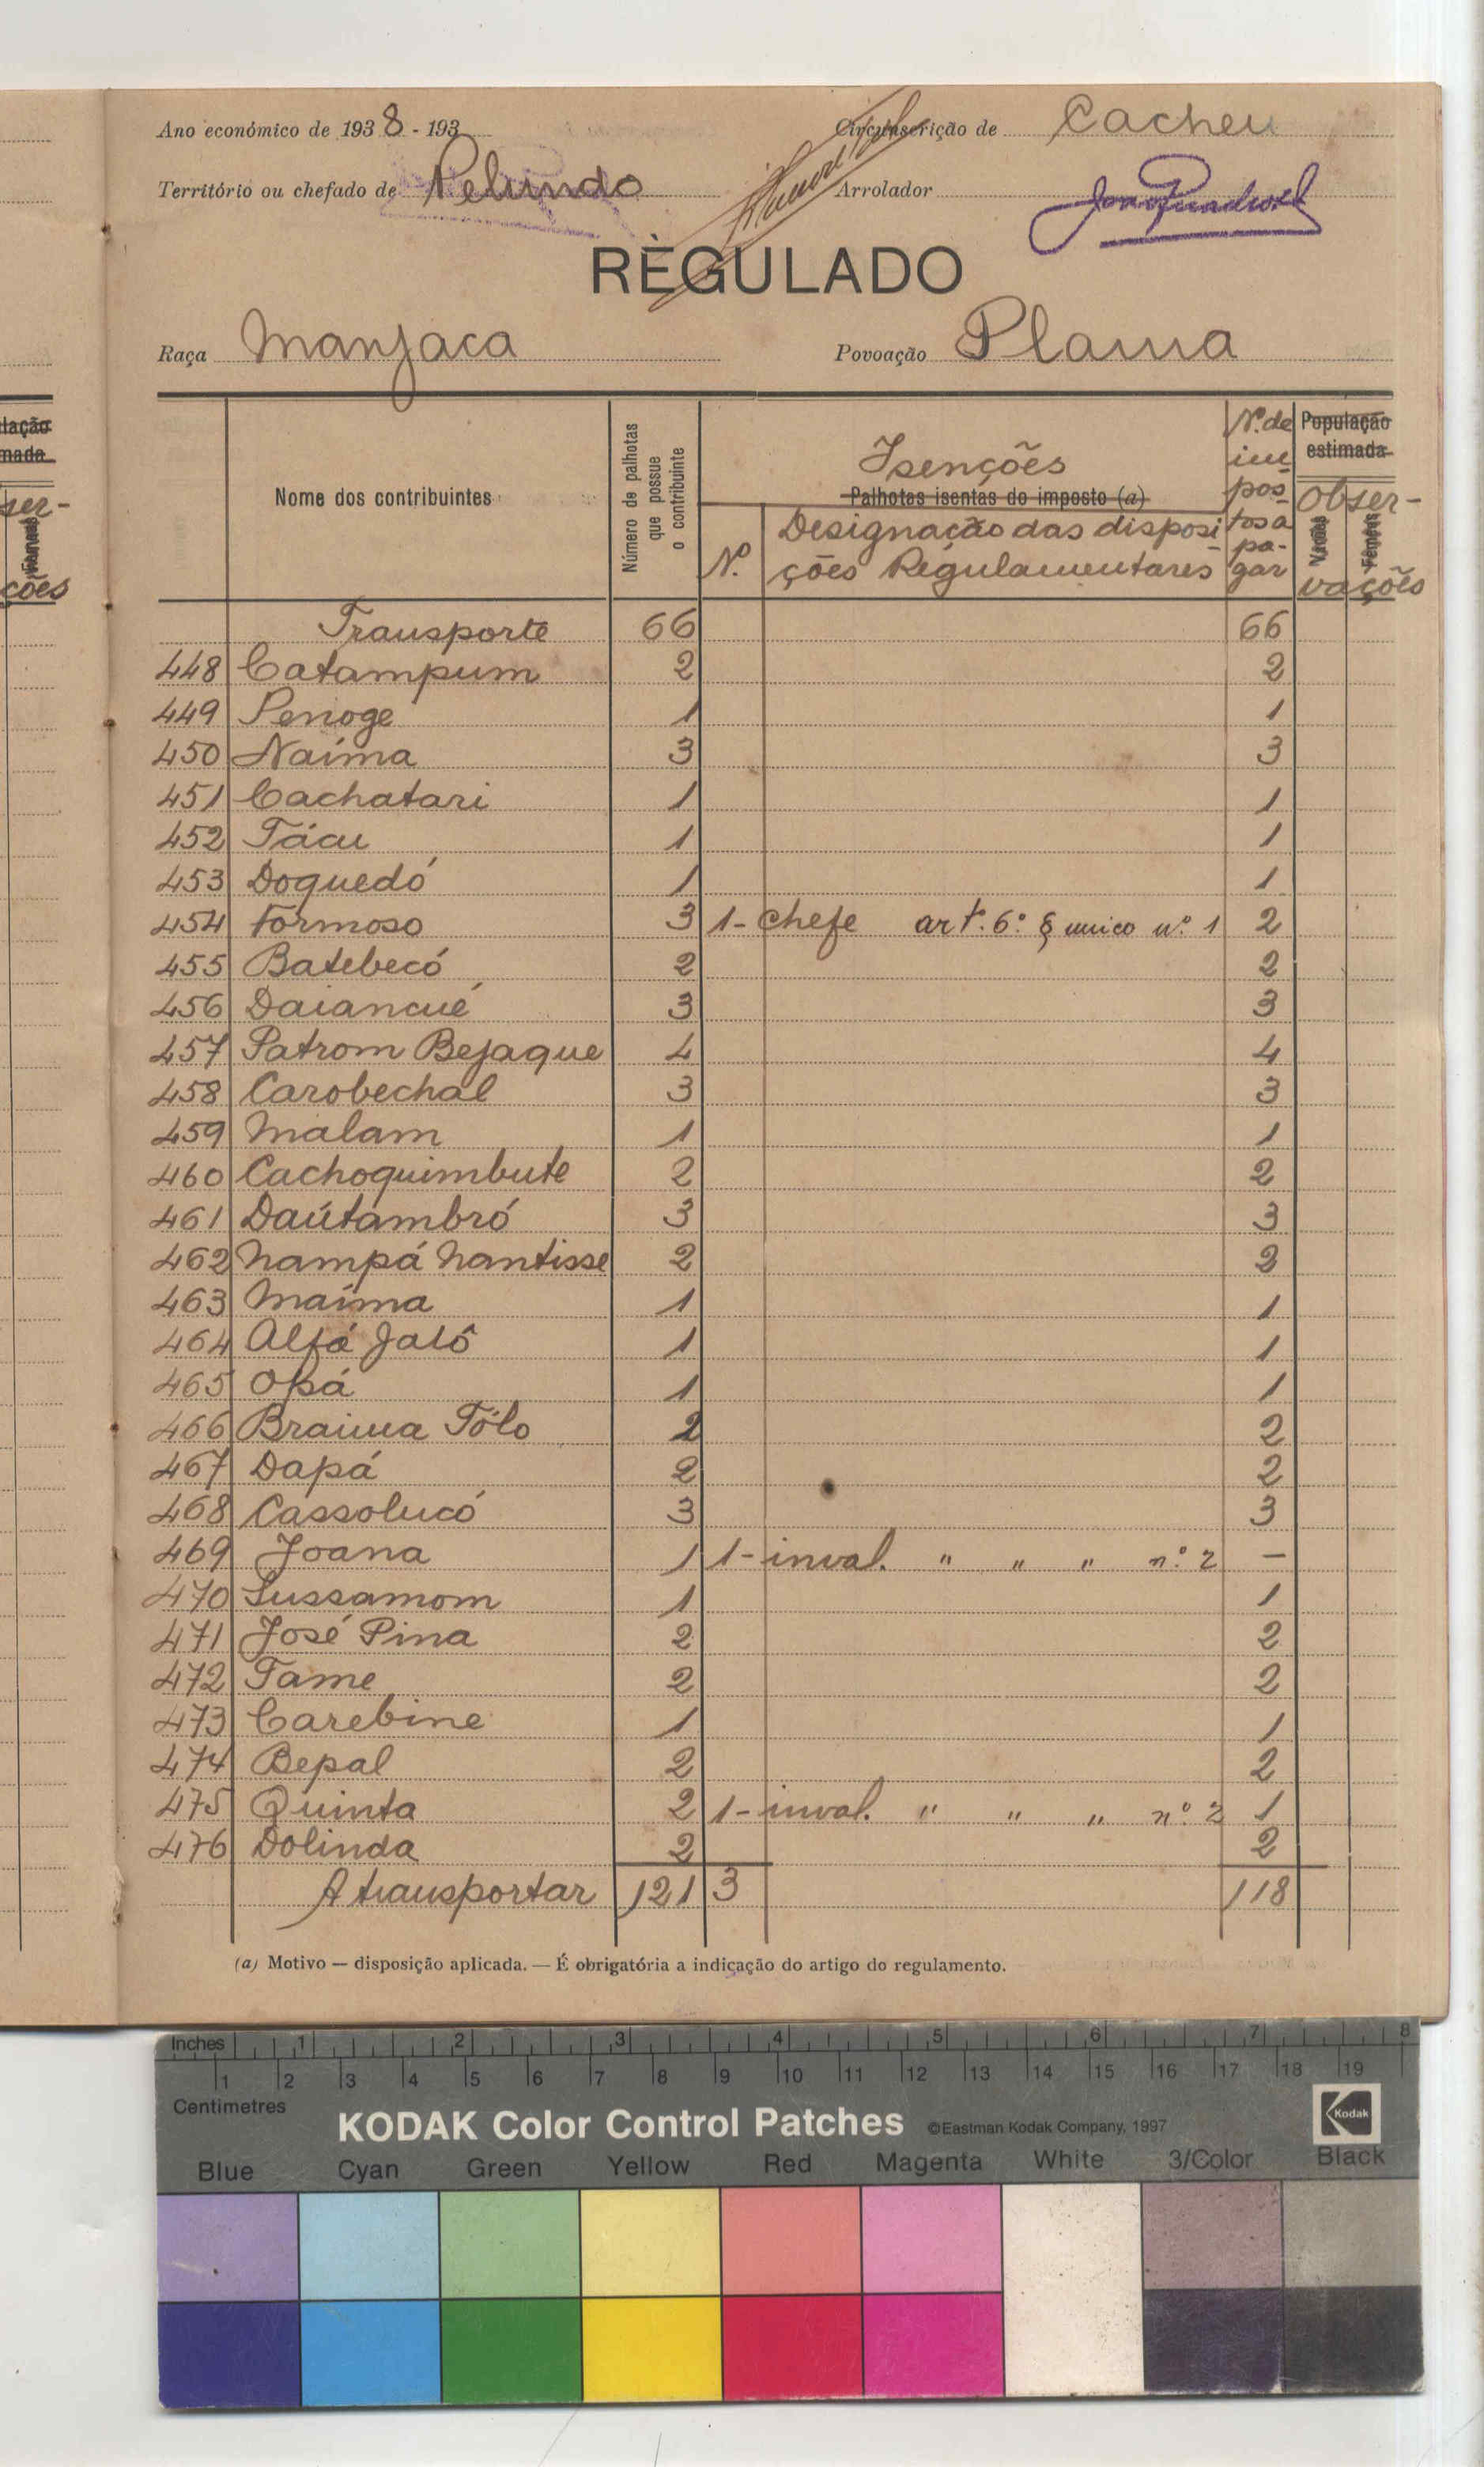 Ano económico de 1938 - 193
Circunscrição de Cacheu
Território ou chefado de Pelundo
Arrolador
RÈGULADO
Raça Manjaca
Povoação Plama
Nome dos contribuintes
Número de palhotas que possue o contribuinte
Isenções
Palhotas isentas do imposto (a)
Nº.
Designação das disposições Regulamentares
Nº. de impostos a pagar
População estimada
Observações
lação
mada
ser-
ções
Transporte 66 66
448 Catampum 2 2
449 Penoge 1 1
450 Naíma 3 3
451 Cachatari 1 1
452 Tácu 1 1
453 Doquedó 1 1
454 Formoso 3 1- chefe art.º 6.º § unico n.º 1 2
455 Batebecó 2 2
456 Daiancué 3 3
457 Patrom Bejaque 4 4
458 Carobechal 3 3
459 Malam 1 1
460 Cachoquimbute 2 2
461 Daútambró 3 3
462 Nampá Nantisse 2 2
463 Maíma 1 1
464 Alfá Jalô 1 1
465 Opá 1 1
466 Braima Tólo 2 2
467 Dapá 2 2
468 Cassolucó 3 3
469 Joana 1 1- inval. " " " n.º 2 —
470 Sussamom 1 1
471 José Pina 2 2
472 Tame 2 2
473 Carebine 1 1
474 Bepal 2 2
475 Quinta 2 1- inval. " " " n.º 2 1
476 Dolinda 2 2
A transportar 121 3 118
(a) Motivo — disposição aplicada. — É obrigatória a indicação do artigo do regulamento.
Inches 1 2 3 4 5 6 7 8
1 2 3 4 5 6 7 8 9 10 11 12 13 14 15 16 17 18 19
Centimetres
KODAK Color Control Patches ©Eastman Kodak Company, 1997 Kodak
Blue Cyan Green Yellow Red Magenta White 3/Color Black